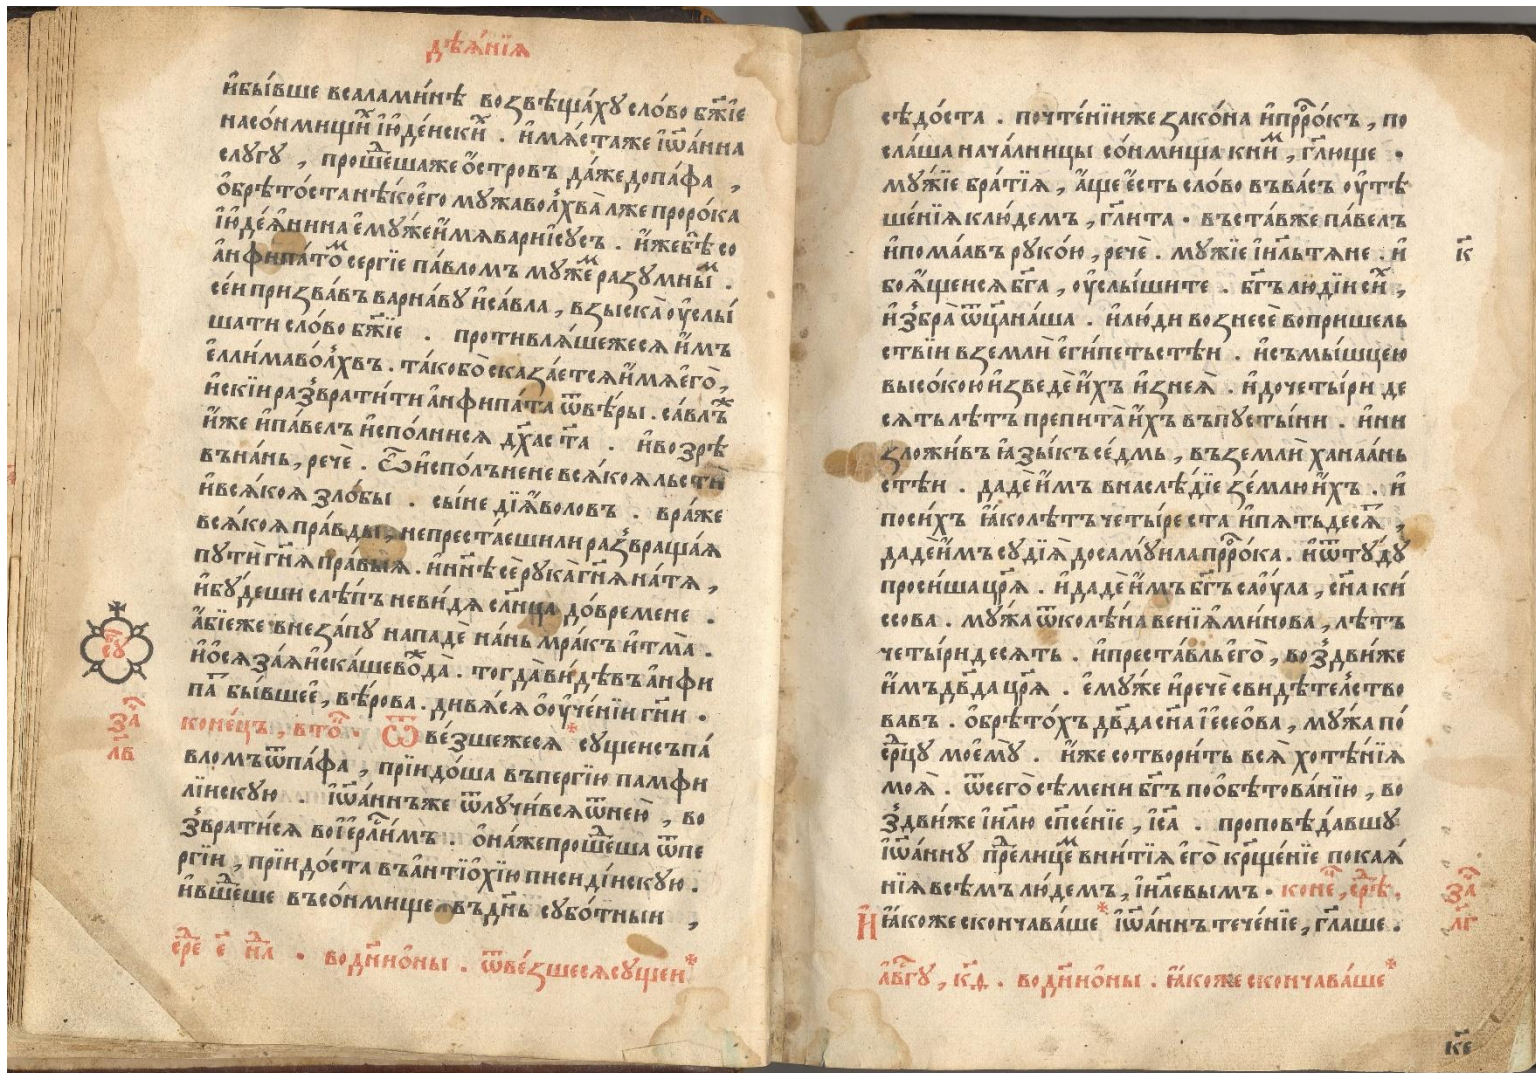 дѣѧ́нїѧ
и҆бы́вше всалами́нѣ возвѣща́хꙋ сло́во бж҃їе
насо́нмищи҆х і҆ю҆де́нски҆х . и҆мѧ́стаже і҆ѡ҆а́нна
слꙋгꙋ , проше́дшаже ѻ҆́стровъ да́жедопа́фа ,
ѻ҆брѣто́станѣ́коего мꙋжаволхва̀ лже проро́ка
і҆ю҆де́ѧнина є҆мꙋ́же и҆́мѧ вариі҆сꙋсъ . и҆́жебѣ̀ со
а҆нфипа́томъ сергїе па́вломъ мꙋ́жемъ разꙋмны́м .
се́и призва́въ варна́вꙋ и҆са́вла , взыска̀ ѹ҆слы́
шати сло́во бж҃їе . противлѧ́шежесѧ и҆́мъ
є҆ллима во́лхвъ . та́кобо̀ сказа́етсѧ и҆́мѧ є҆го̀ ,
и҆скїи развратити а҆нфипа́та ѿвѣ́ры . са́влъже
и҆́же и҆па́велъ и҆спо́лнисѧ дх҃а ст҃а . и҆возрѣ́
въна́нь , речѐ . ѽ и҆спо́лънене всѧ́коѧ льстѝ
и҆всѧ́коѧ зло́бы . сы́не дїѧ́волов . вра́же
всѧ́коѧ пра́вды , непреста́еши ли развраща́ѧ
пꙋтѝ гн҃ѧ пра́выѧ . и҆нн҃ѣ сѐ рꙋка̀ гн҃ѧ на́тѧ ,
и҆бꙋ́деши слѣ́пъ невидѧ сл҃нца до́времене .
а҆́бїеже внеза́пꙋ нападѐ на́нь мра́къ и҆тма̀ .
и҆ѻ҆сѧза́ѧ и҆ска́ше вожда̀ . тогда̀ ви́дѣвъ а҆нфи
па́т бы́вшее , вѣ́рова . дивѧ́сѧ ѻ҆ѹ҆че́нїи гн҃и .
коне́цъ , вто́р . Ѿве́зшежесѧ сꙋщеи съпа́
вломъ ѿпа́фа , прїидо́ша въпергїю памфи
лїискꙋю . і҆ѡ҆а́ннъже ѿлꙋчи́всѧ ѿнею̀ , во
звратисѧ воі҆ерⷭ҇ли́мъ . ѻ҆на́же проше́дша ѿпе
ргїи , прїидо́ста въа҆нтїѻ҆хїю писиди́искꙋю .
и҆вше́дше въсо́нмище въдн҃ь сꙋбо́тныи ,
сꙋ
за҄
лв҃
є҃ нед҃л . водн҃ иѻ҆ны . ѿве́зшесѧ сꙋщеи
сѣдо́ста . почте́нїиже зако́на и҆прⷪ҇ро́къ , по
сла́ша нача́лницы со́нмища кни́м , гл҃юще .
мꙋ́жїе бра́тїѧ , а҆́ще е҆́сть сло́во въва́съ ѹ҆тѣ
ше́нїѧ клю́демъ , гл҃ита . въста́вже па́велъ
и҆пома́авъ рꙋко́ю , речѐ . мꙋжїе і҆и҃льтѧне . и҆
боѧ́щеисѧ бг҃а , ѹ҆слы́шите . бг҃ъ лю́дїи си́х ,
и҆збра̀ ѿц҃а на́ша . и҆лю́ди вознесѐ вопришель
ствїи вземлѝ є҆ги́петьстѣи . и҆съмы́шцею
высо́кою и҆зведѐ и҆́хъ и҆знеѧ̀ . и҆дочеты́ри де
сѧть лѣ́тъ препита̀ и҆́хъ въпꙋсты́ни . и҆ни
зложи́въ ꙗ҆зы́къ се́дмь , въземлѝ ханаа́нь
стѣи . дадѐ и҆́мъ внаслѣ́дїе зе́млю и҆́хъ . и҆
поси́хъ ꙗ҆́ко лѣ́тъ четы́ре ста и҆пѧтьдесѧ́т ,
дадѐ и҆́мъ сꙋдїѧ̀ досамꙋ́ила прⷪ҇ро́ка . и҆ѿтꙋ́дꙋ
проси́ша цр҃ѧ . и҆дадѐ и҆́мъ бг҃ъ саѹ҆ла , сн҃а ки́
сова . мꙋ́жа ѿколѣ́на венїѧми́нова , лѣ́тъ
четы́ридесѧть . и҆преста́вль є҆го̀ , воздви́же
и҆́мъ дв҃да цр҃ѧ . є҆мꙋ́же и҆речѐ свидѣ́телство
вавъ . ѻ҆брѣто́хъ дв҃да сн҃а і҆ессе́ова , мꙋ́жа по́
срⷣцꙋ моемꙋ̀ . и҆́же сотвори́ть всѧ̀ хотѣ́нїѧ
моѧ̀ . ѿсего̀ сѣ́мени бг҃ъ поѻ҆бѣтова́нїю , во
здви́же і҆и҃лю сп҃се́нїе , і҆с҃а . проповѣ́давшꙋ
і҆ѡ҆а́ннꙋ пре́длицем вни́тїѧ є҆го̀ крⷭ҇ще́нїе покаѧ́
нїѧ всѣ́мъ лю́демъ , і҆и҃левымъ . коне́ц , срⷣѣ .
И҆ ꙗ҆́коже скончава́ше і҆ѡ҆а́ннъ тече́нїе , гл҃аше .
к҃
за҄
лг҃
а҆́вгꙋ , к҃ѳ . водн҃ иѻ҆ны . ꙗ҆́коже скончава́ше
к҃е